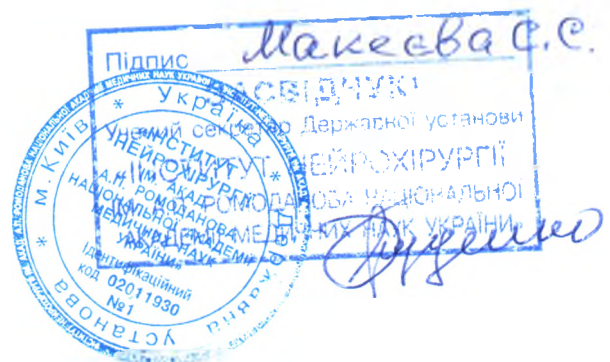 Підпис Макеєва С.С.
ЗАСВІДЧУЮ
Учений секретар Державної установи
ІНСТИТУТ НЕЙРОХІРУРГІЇ
РОМОДАНОВА НАЦІОНАЛЬНОЇ
МЕДИЧНИХ НАУК УКРАЇНИ»
* Україна * Державна установа * м. Київ
«ІНСТИТУТ
НЕЙРОХІРУРГІЇ
ІМ. АКАД.
А.П. РОМОДАНОВА
НАЦІОНАЛЬНОЇ АКАДЕМІЇ
МЕДИЧНИХ НАУК
УКРАЇНИ»
Ідентифікаційний
код 02011930
№1